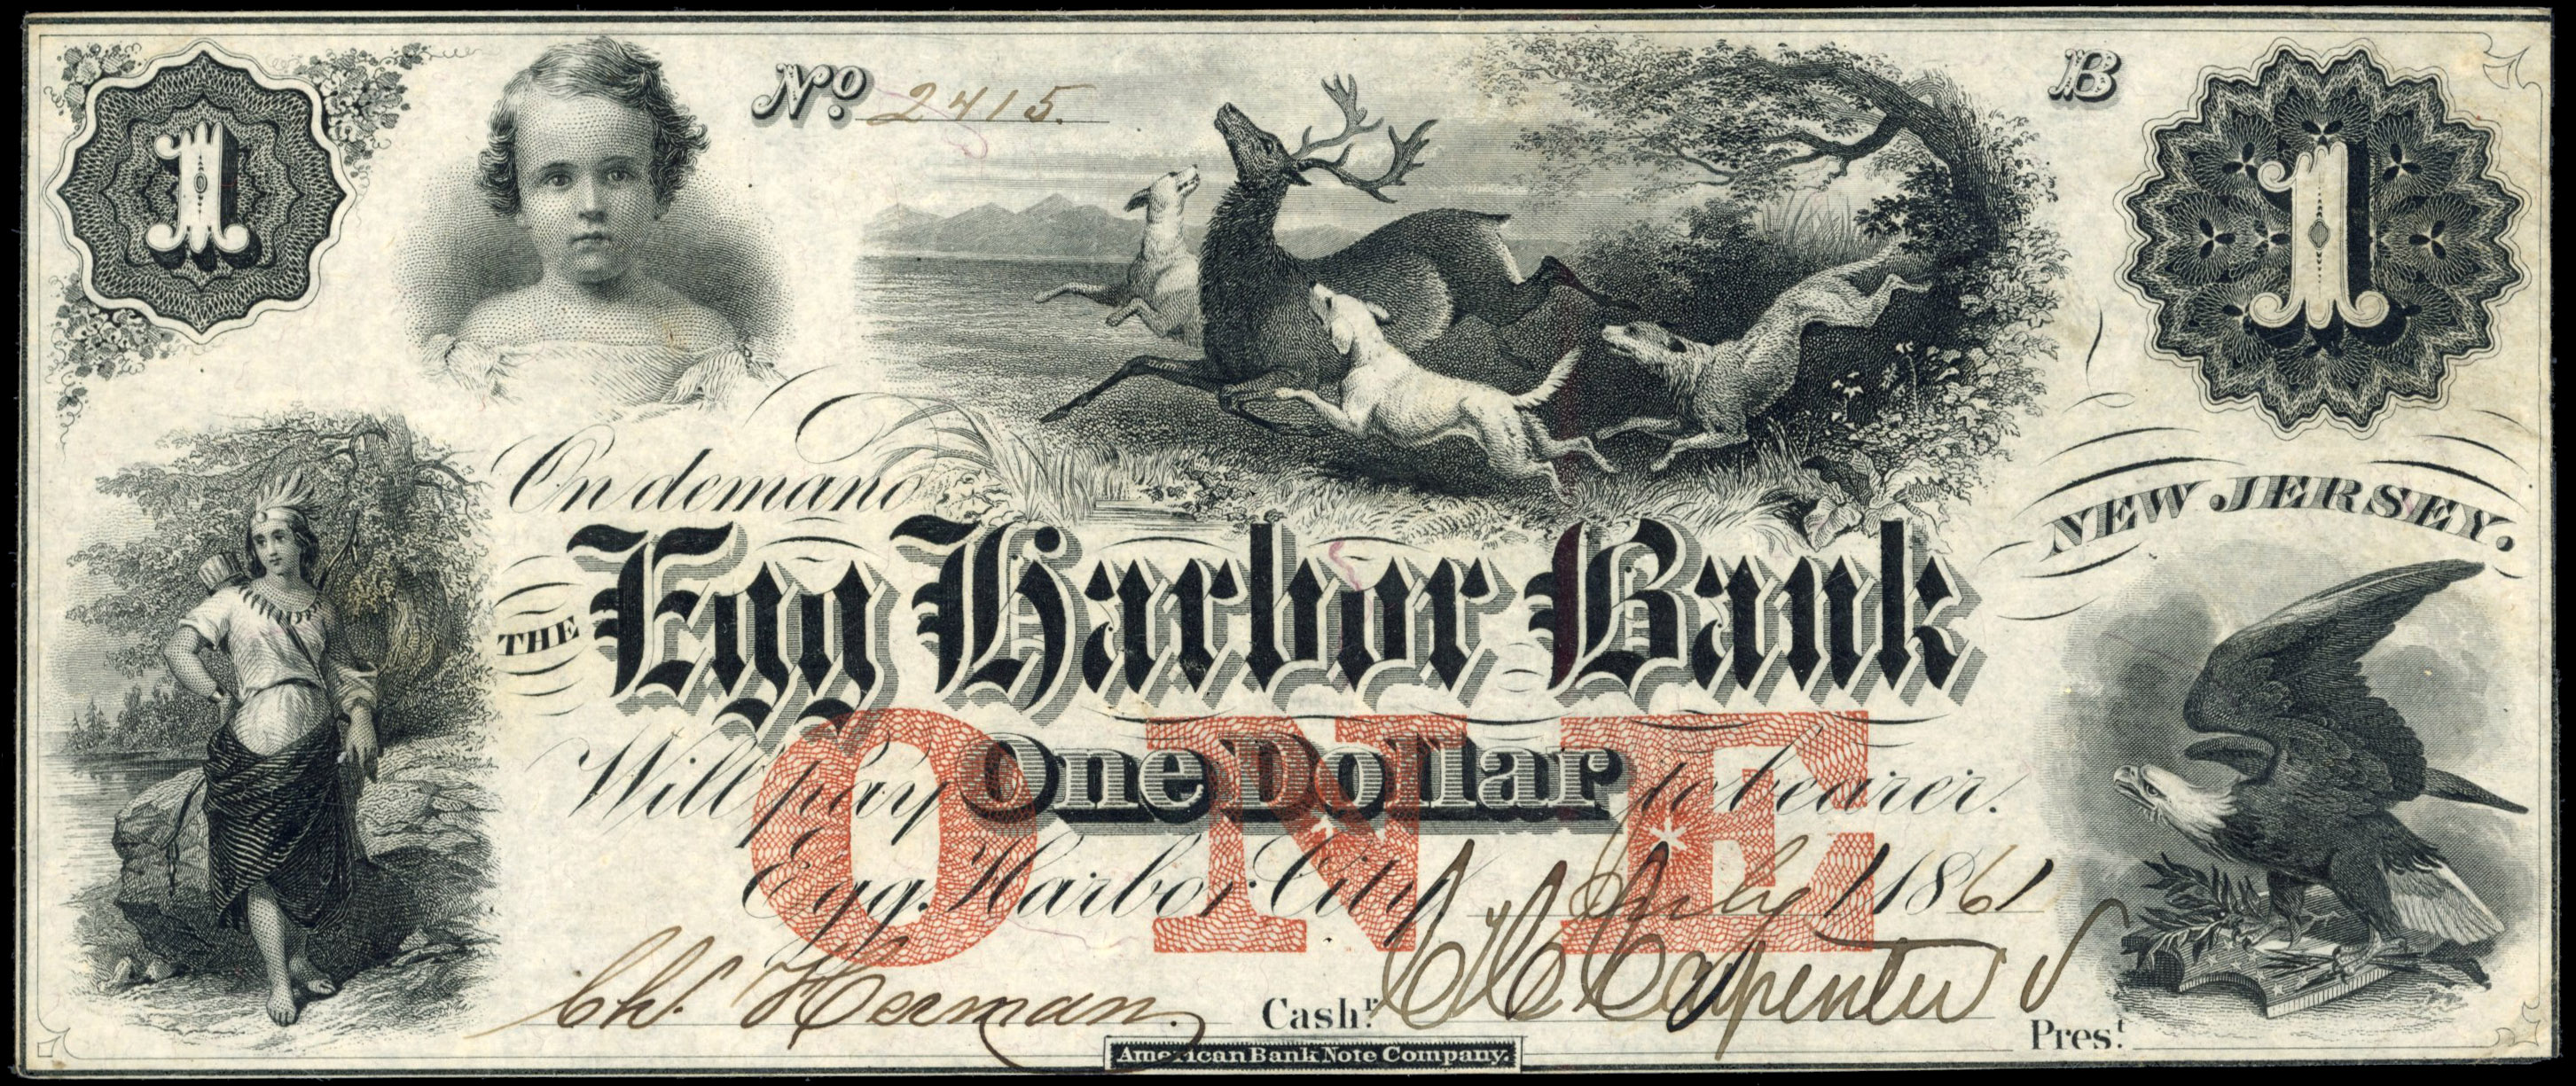 1
No. 2415.
B
1
On demand
NEW JERSEY.
THE Egg Harbor Bank
Will pay One Dollar to bearer.
ONE
Egg Harbor City July 1 1861
Chs. Herman Cashr.
C H Carpenter Prest.
American Bank Note Company.